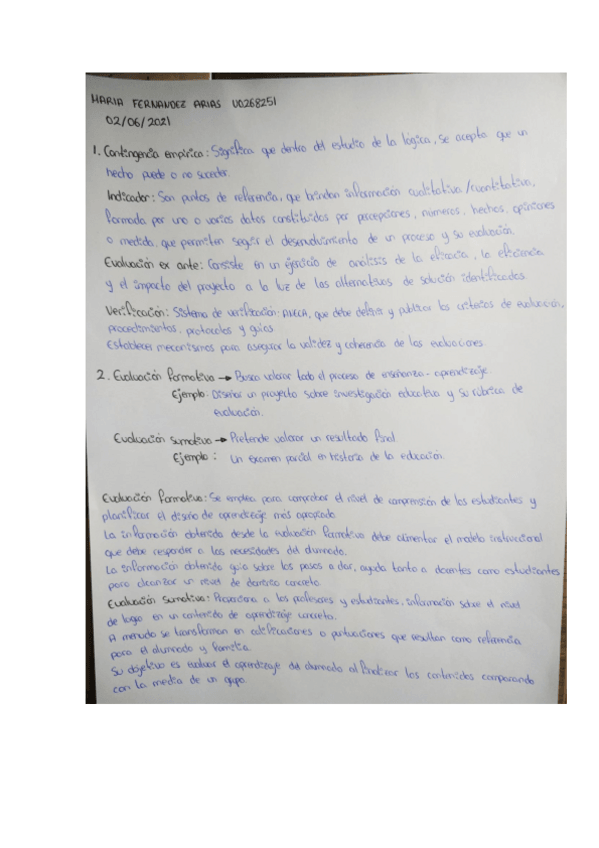 MARIA FERNANDEZ ARIAS UO268251
02/06/2021
1. Contingencia empírica: Significa que dentro del estudio de la lógica, se acepta que un
hecho puede o no suceder.
Indicador: Son puntos de referencia, que brindan información cualitativa/cuantitativa,
formada por uno o varios datos constituidos por percepciones, números, hechos, opiniones
o medida, que permiten seguir el desenvolvimiento de un proceso y su evaluación.
Evaluación ex ante: Consiste en un ejercicio de análisis de la eficacia, la eficiencia
y el impacto del proyecto a la luz de las alternativas de solución identificadas.
Verificación: Sistema de verificación: ANECA, que debe definir y publicar los criterios de evaluación,
procedimientos, protocolos y guías.
Establecer mecanismos para asegurar la validez y coherencia de las evaluaciones.
2. Evaluación formativa → Busca valorar todo el proceso de enseñanza - aprendizaje.
Ejemplo: Diseñar un proyecto sobre investigación educativa y su rúbrica de
evaluación.
Evaluación sumativa → Pretende valorar un resultado final
Ejemplo: Un examen parcial en historia de la educación.
Evaluación formativa: Se emplea para comprobar el nivel de comprensión de los estudiantes y
planificar el diseño de aprendizaje más apropiado.
La información obtenida desde la evaluación formativa debe alimentar el modelo instruccional
que debe responder a las necesidades del alumnado.
La información obtenida guía sobre los pasos a dar, ayuda tanto a docentes como estudiantes
para alcanzar un nivel de dominio concreto.
Evaluación Sumativa: Proporciona a los profesores y estudiantes, información sobre el nivel
de logro en un contenido de aprendizaje concreto.
A menudo se transforman en calificaciones o puntuaciones que resultan como referencia
para el alumnado y familia.
Su objetivo es evaluar el aprendizaje del alumnado al finalizar los contenidos comparando
con la media de un grupo.